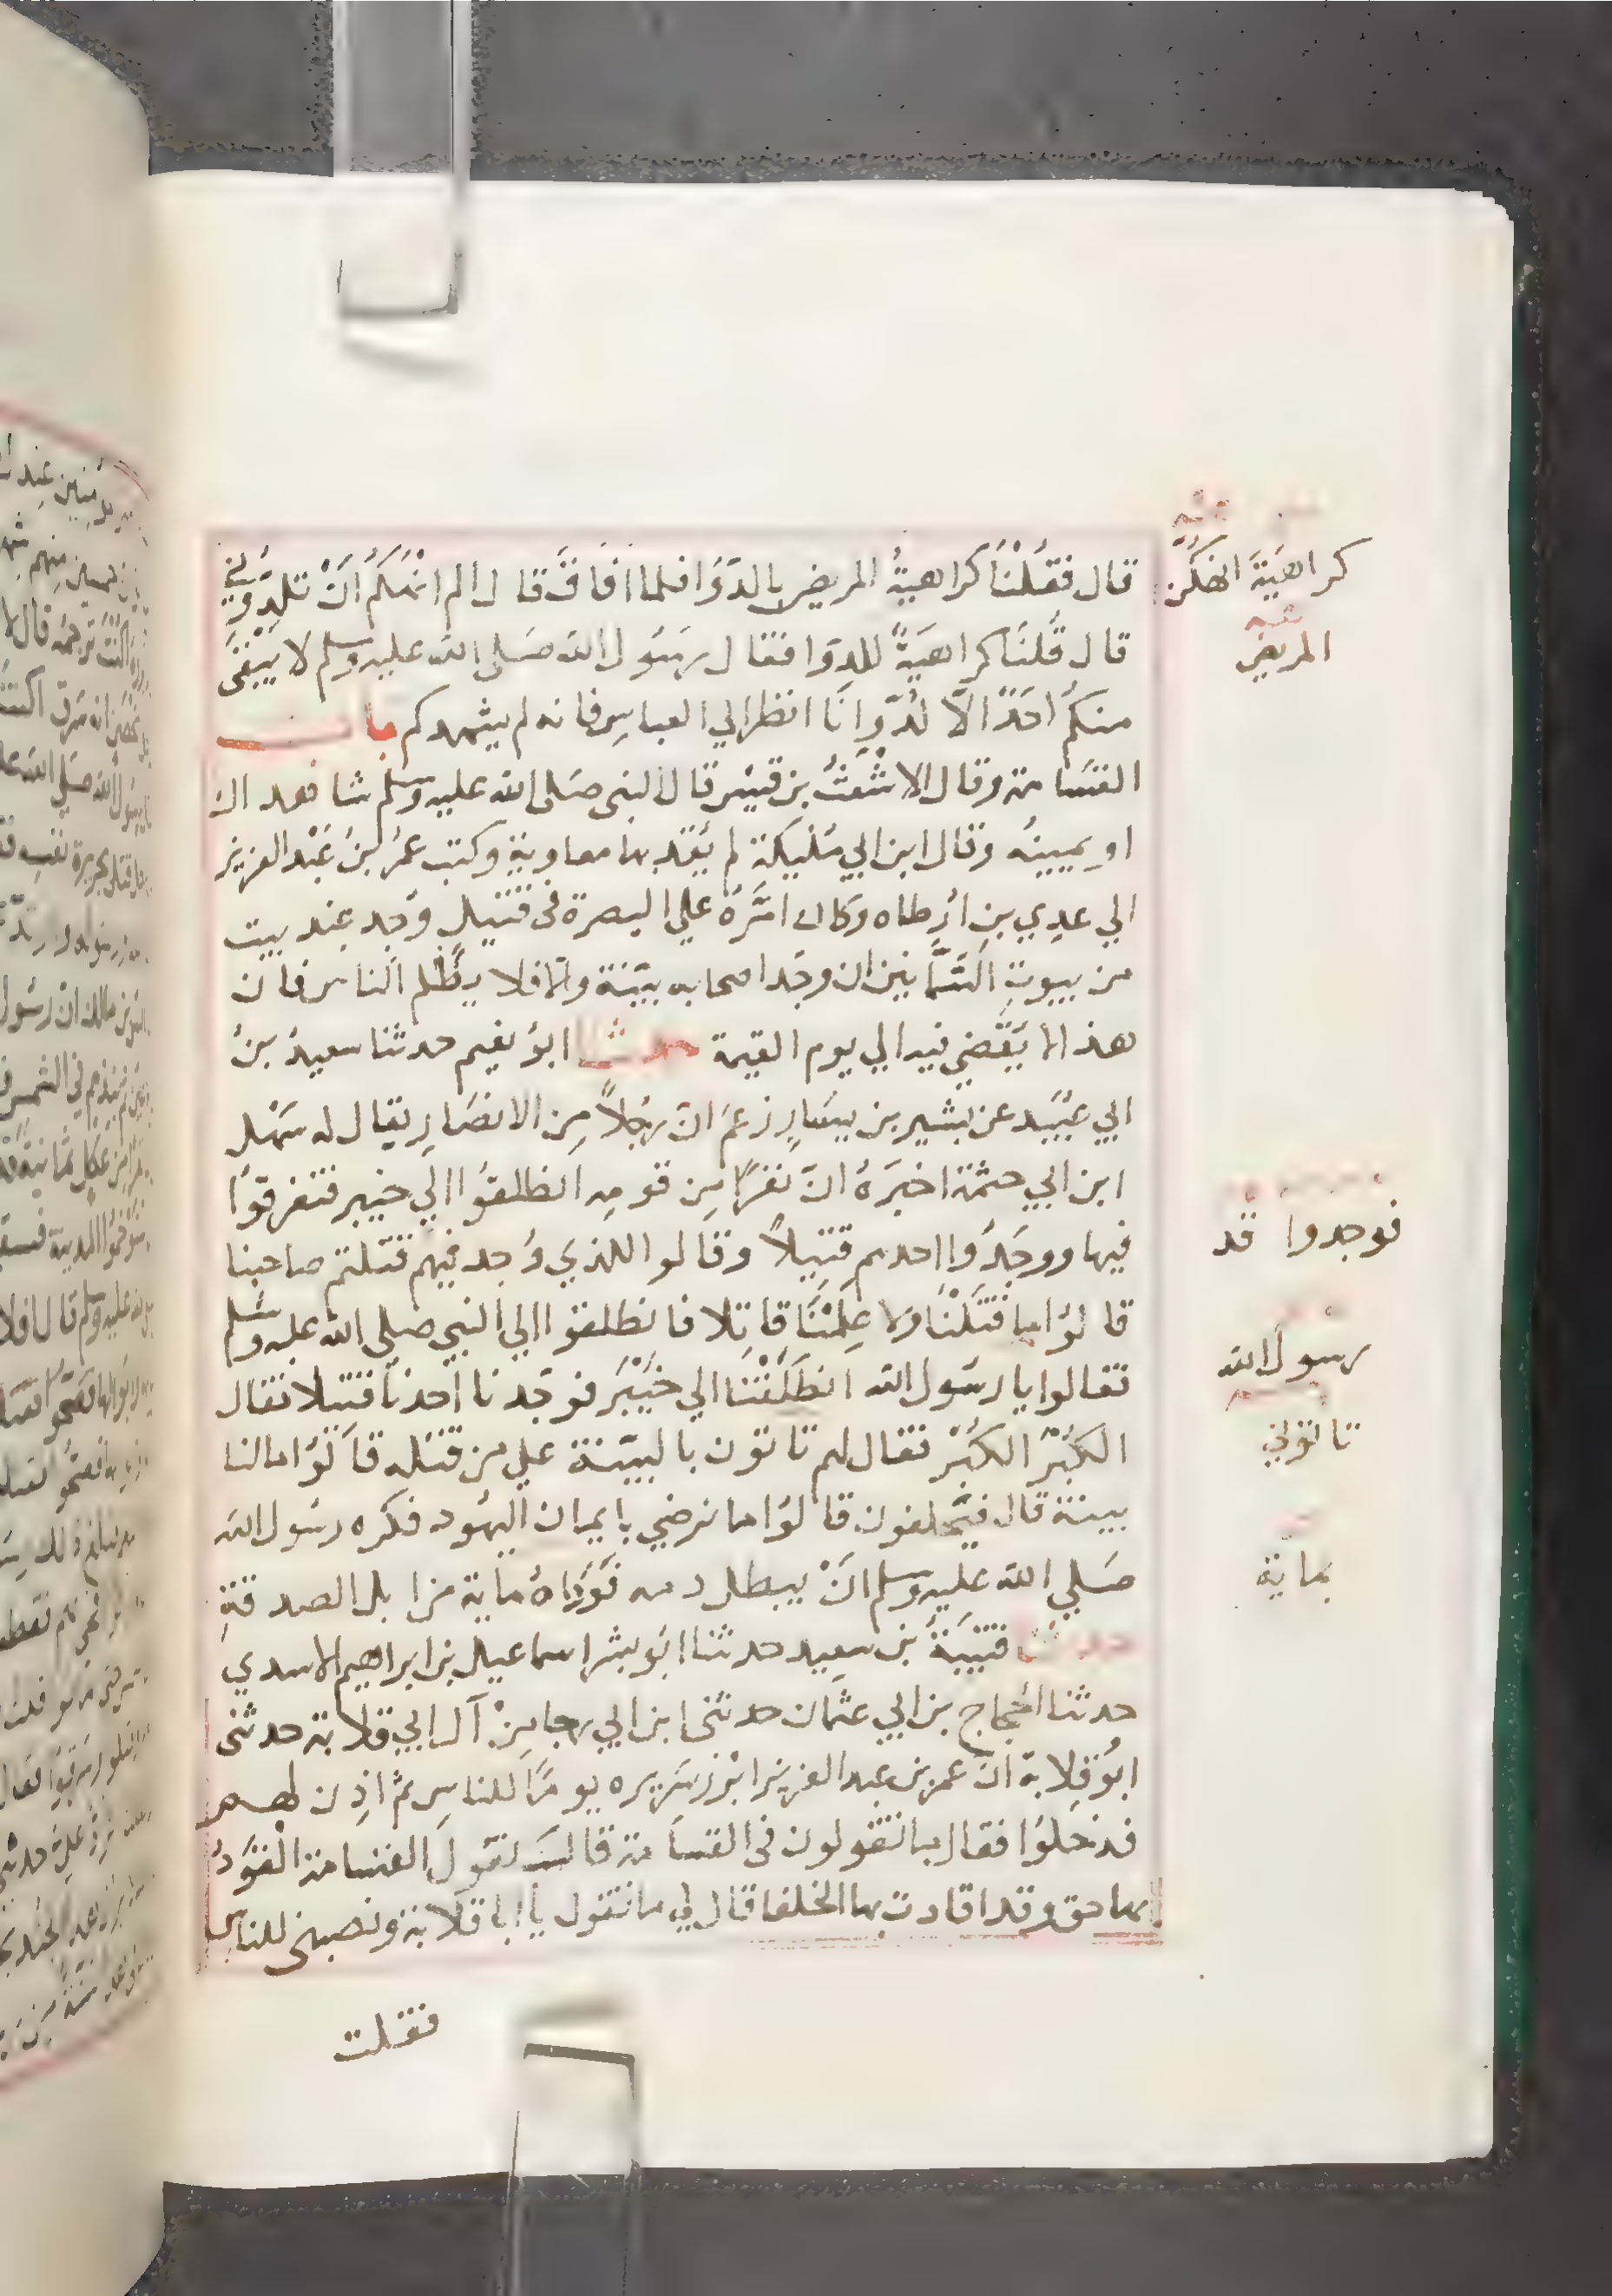 قال فقُلْنَا كراهيةُ المريض بالدّوَا فلما افاق قال الم انْهَكُمْ اَنْ تلدّوُني
قال قُلنَا كراهيَةً للدوَا فقال رسَول الله صَلى الله عليه وسلم لا يَبْقَى
منكمُ احَدٌ الاّ لُدّ وانَا انظر الي العباسِ فانه لم يشهدكم باب
القسَامة وقال الاشْعَثُ بن قيْس قال النبى صَلى الله عليه وسَلم شاهداك
او يمينُه وقال ابن ابي مُليكة لم يُقِدْ بها معاوية وكتب عمَرُ بنُ عَبْد العزيز
الي عدِي بن ارْطاه وكان امَّرَهُ على البصرة فى قتيل وُجد عند بيت
من بيوت السَّمَّانين ان وجَد اصحابه بيّنة والا فلا يظلم الناس فان
هذا لا يقضي فيه الي يوم القيمة حدثنا ابوُ نعيم حدثنا سعيدُ بنُ
ابي عبُيد عن بشير بن يسَارِ زعمَ انّ رجُلاً مِن الانصَارِ يقال له سَهْل
ابن ابي حثمة اخبَرَهُ انّ نفرًا مِن قومِه انطلقوُا الي خيبر فتفرقوُا
فيها ووجَدُوا احدهم قتيلاً وقالو اللذي وُجد فيهم قتلتم صاحبنا
قالوُا ما قتَلْنَا ولا عِلمْنَا قاتِلا فانطلقوا الي النبي صلى الله عليه وسَلم
فقالوا يا رسَول الله انطلَقْنَا الي خيْبَرَ فوجَدنا احَدنا قتيلا فقال
الكُبْرَ الكُبْرَ فقال لهم تاتون بالبيّنة علي من قتَله قالوُا ما لنا
بينة قال فيَحلفون قالوُا ما نرضي بايمان اليهُود فكره رسُول الله
صَلي الله عليه وسلم انْ يبطل دمه فوَدَاهُ ماية من ابل الصدقةِ
حدثنا قتيبَةُ بن سعيد حدثنا ابوُ بشر اسماعيل بن ابراهيم الاسدي
حدثنا الحجاج بن ابي عثمان حدثنى ابن ابي رجا مِنْ آل ابي قلابة حدثنى
ابوُ قِلابة انّ عمر بن عبد العزيز ابْرز سَريره يومًا للناسِ ثم اذِن لهم
فدخلوُا فقال ما تقولون فى القسَامة قال نقول القسامة القوَدُ
بها حق وقد اقادت بها الخلفا قال لي ما تقول يا ابا قلابة ونصبنى للناس
فقلت
كراهيَةَ
المريض
فوجدوا قد
رسول الله
تاتوني
بماية